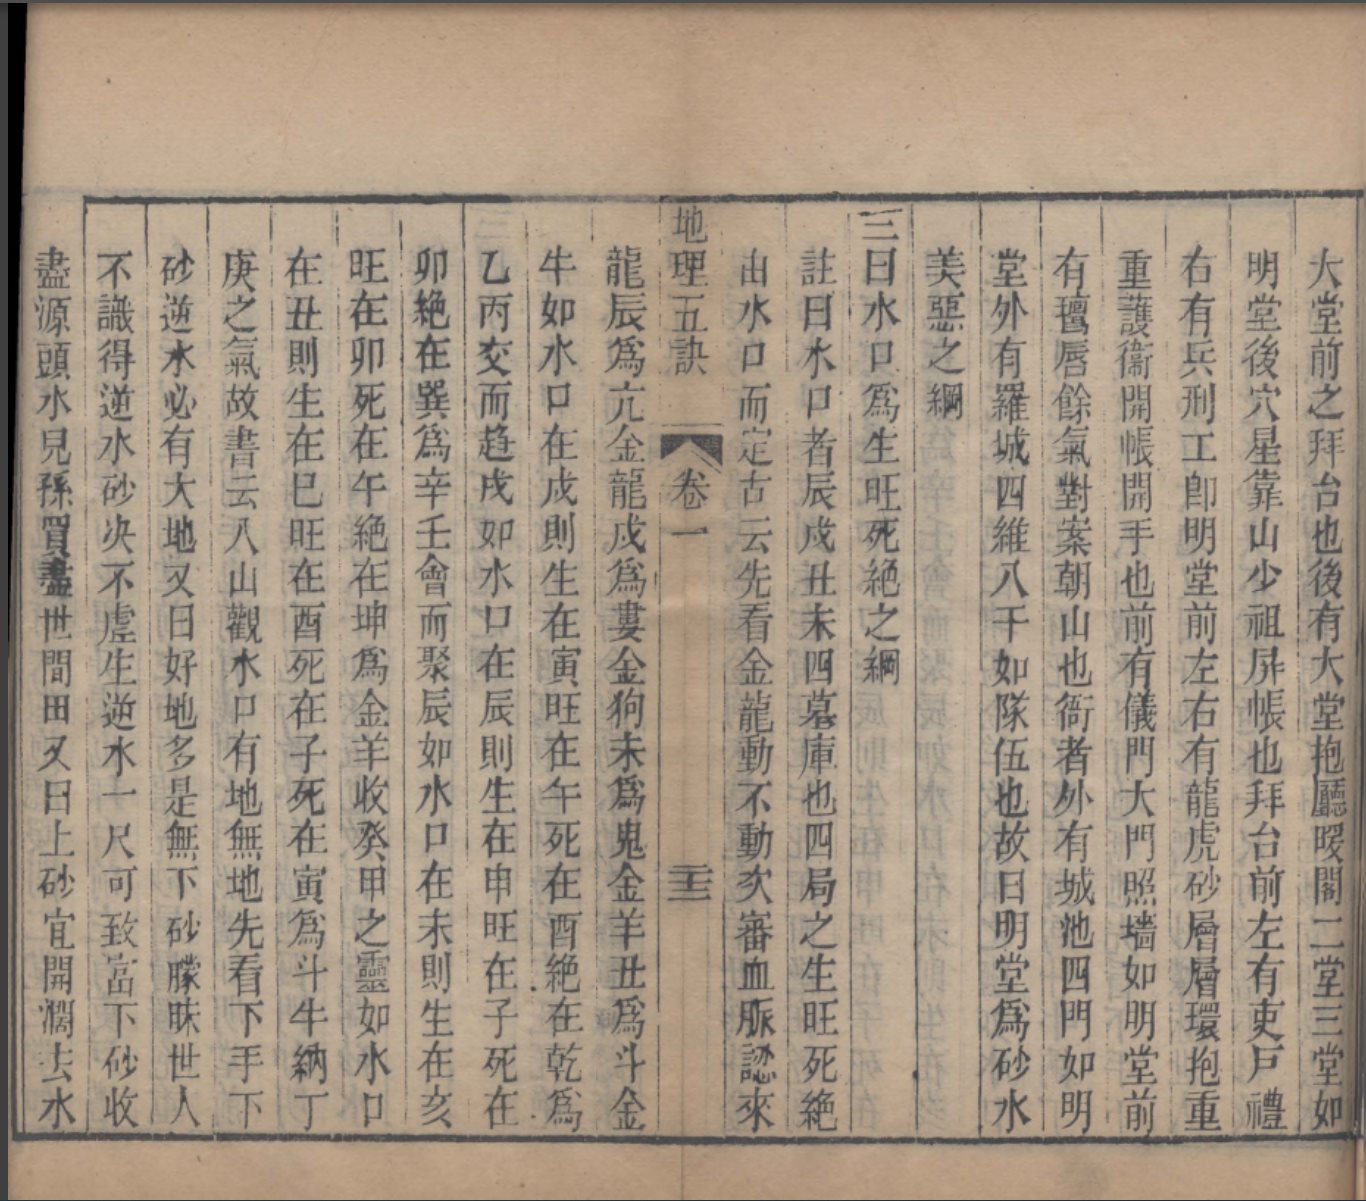 大堂前之拜台也後有大堂抱廳暖閣二堂三堂如
明堂後穴星靠山少祖屏帳也拜台前左有吏戶禮
右有兵刑工即明堂前左右有龍虎砂層層環抱重
重護衞開帳開手也前有儀門大門照墻如明堂前
有氊唇餘氣對案朝山也衙者外有城池四門如明
堂外有羅城四維八干如隊伍也故曰明堂爲砂水
美惡之綱
三曰水口爲生旺死絶之綱
註曰水口者辰戌丑未四墓庫也四局之生旺死絶
由水口而定古云先看金龍動不動次審血脈認來
地理五訣 卷一 二十三
龍辰爲亢金龍戌爲婁金狗未爲鬼金羊丑爲斗金
牛如水口在戌則生在寅旺在午死在酉絶在乾爲
乙丙交而趨戌如水口在辰則生在申旺在子死在
卯絶在巽爲辛壬會而聚辰如水口在未則生在亥
旺在卯死在午絶在坤爲金羊收癸甲之靈如水口
在丑則生在巳旺在酉死在子死在寅爲斗牛納丁
庚之氣故書云入山觀水口有地無地先看下手下
砂逆水必有大地又曰好地多是無下砂朦昧世人
不識得逆水砂决不虛生逆水一尺可致富下砂收
盡源頭水兒孫買盡世間田又曰上砂宜開濶去水